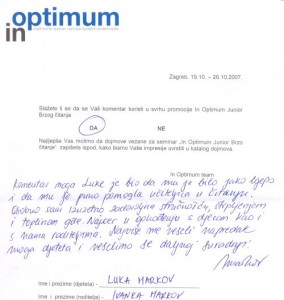 in optimum
Zagreb, 19.10. – 26.10.2007.
Slažete li se da se Vaš komentar koristi u svrhu promocije In Optimum Junior
Brzog čitanja
DA NE
Najljepše Vas molimo da dojmove vezane za seminar „In Optimum Junior Brzo
čitanje" zapišete ispod, kako bismo Vaše impresije uvrstili u katalog dojmova.
In Optimum team
Komentar moga Luke je bio da mu je bilo jako lijepo
i da mu je puno pomogla učiteljica u čitanju.
Osobno sam izuzetno zadovoljna stručnošću, strpljenjem
i toplinom gđe. Najcer u ophođenju s djecom kao i
s nama roditeljima. Najviše me veseli napredak
moga djeteta i veselimo se daljnjoj suradnji.
Ime i prezime (djeteta) : LUKA MARKOV
Ime i prezime (roditelja) : IVANKA MARKOV